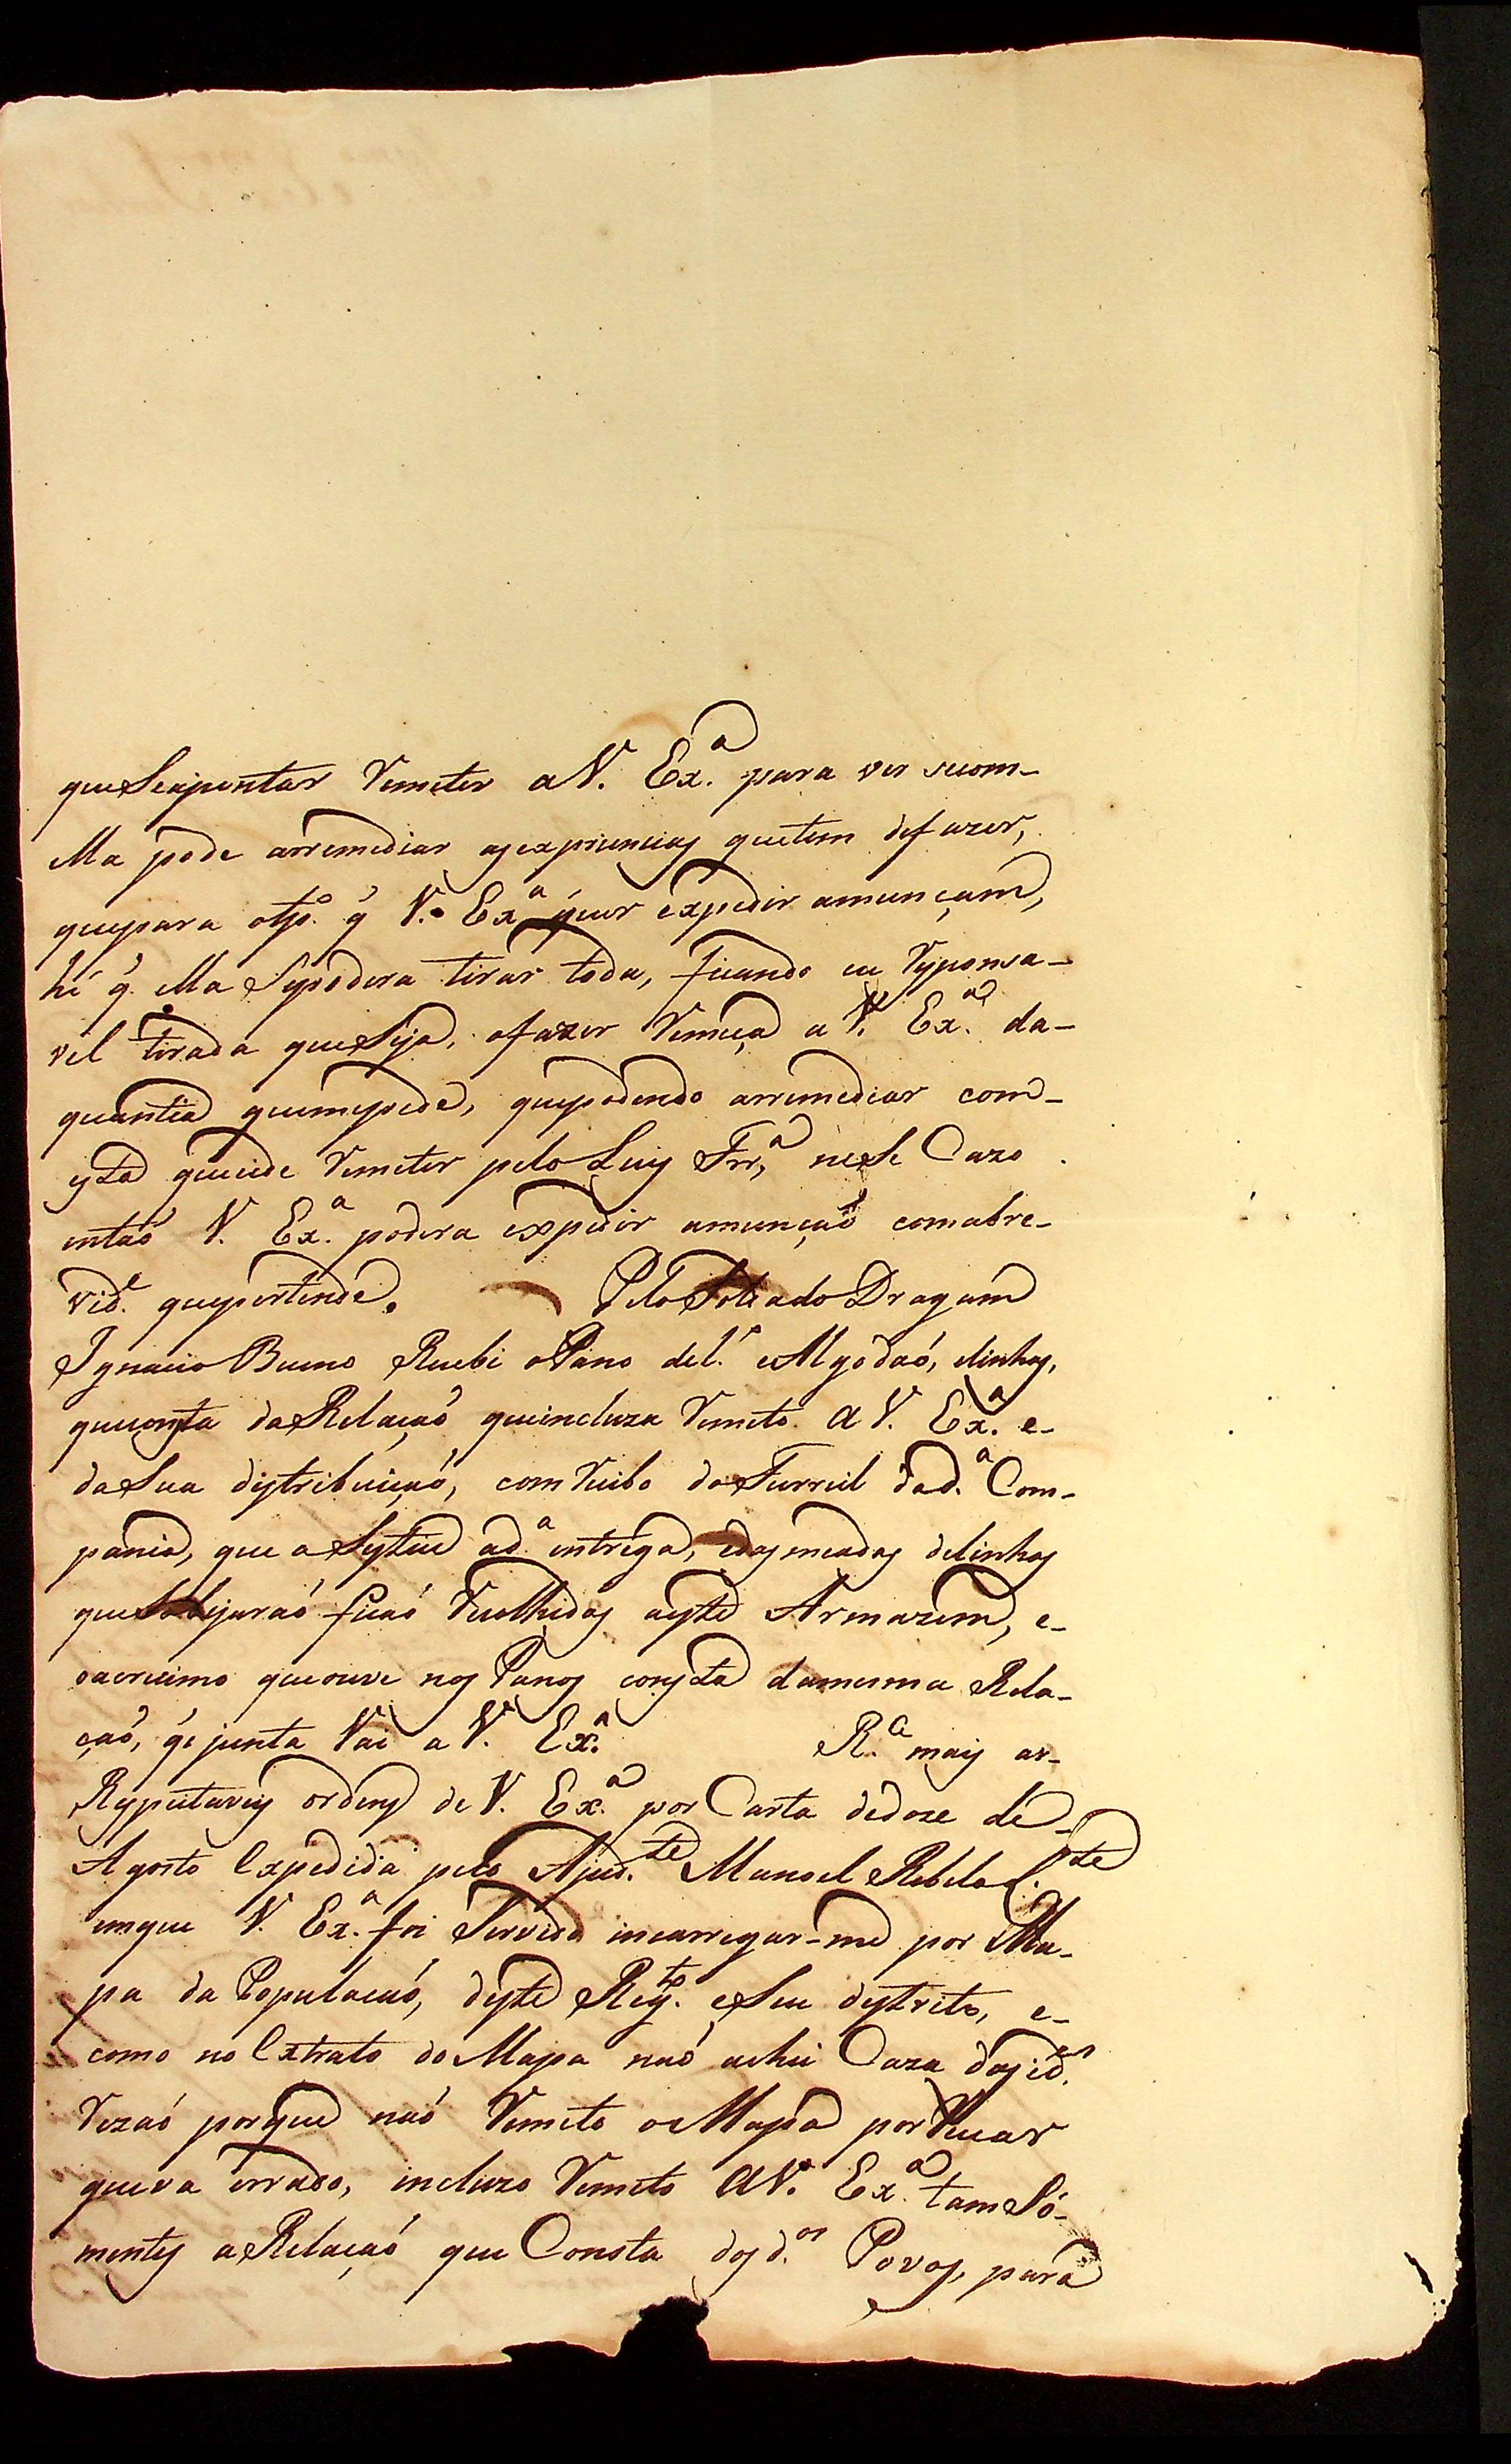 que Seapontar Remeter a V. Ex.ª para ver secom-
Ella pode arremediar as expriencias que tem de fazer,
que para
he q. Ella Sepodera tirar toda, ficando eu Responsa-
vel tirada que Seja, afazer Remeça a V. Ex.ª da-
quantia que mepede, que podendo arremediar com-
esta que eide Remeter pelo Luis Frr.ª nese Cazo
entaó V. Ex.ª podera expedir amunçaó comabre-
vid.e que pertende. Pelo Soldado Dragam
Ignacio Bueno Recebi o Pano de l.º e Algodaó, elinhas,
que consta da Relaçaó que incluza Remeto a V. Ex.ª e-
da Sua distribuiçaó, com Recibo do Furriel da d.ª Com-
pania, que a Sestiu ad.ª entrega, e das meadas de linhas
que Sobejaraó ficaó Recolhidas neste Armazem, e-
oacrecimo que ouve nos Panos consta damesma Rela-
çaó, q.e junta Vai a V. Ex.ª R.ª mais as-
Respeitaveis ordens de V. Ex.ª por Carta de doze de-
Agosto Expedida pelo Ajud.te Manoel Rebelo
emque V. Ex.ª foi Servido incarregar-me por Ma-
pa da Populaçaó, deste Reg.to eSeu destrito, e-
como no Extrato do Mapa naó achei Caza das id.es
Rezaó porque naó Remeto o Mapa por Recear
que va errado, incluzo Remeto a V. Ex.ª tam Só-
mentes a Relaçaó que Consta dos d.os Povos, para